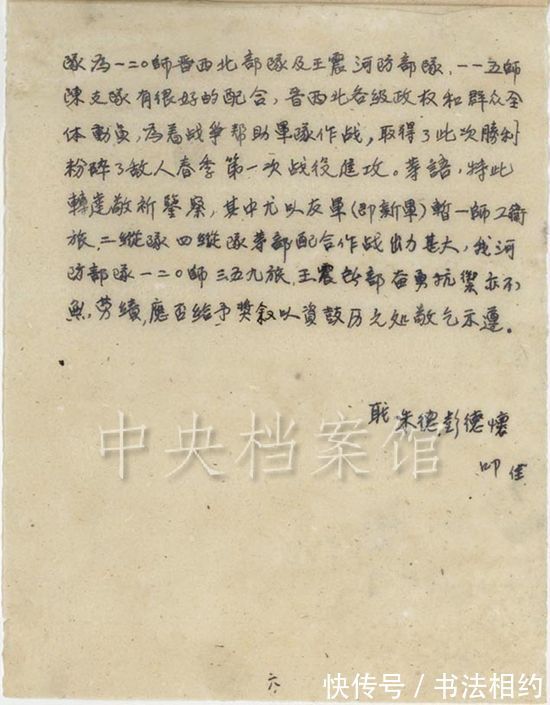 隊為一二〇師晋西北部隊及王震河防部隊，一一五師
陳支隊有很好的配合，晋西北各級政权和群众全
体動員，為着战争帮助軍隊作战，取得了此次勝利
粉碎了敌人春季第一次战役進攻。等語，特此
轉達敬祈鑒察，其中尤以友軍（即新軍）暫一師工衛
旅，二縱隊四縱隊等部配合作战出力甚大，我河
防部隊一二〇師三五九旅，王震所部奋勇抗禦亦不
無劳績，應否給予奬叙以資鼓历之处敬乞示遵。
職朱德彭德懷
叩佳
中央档案馆
六
快传号／书法相约